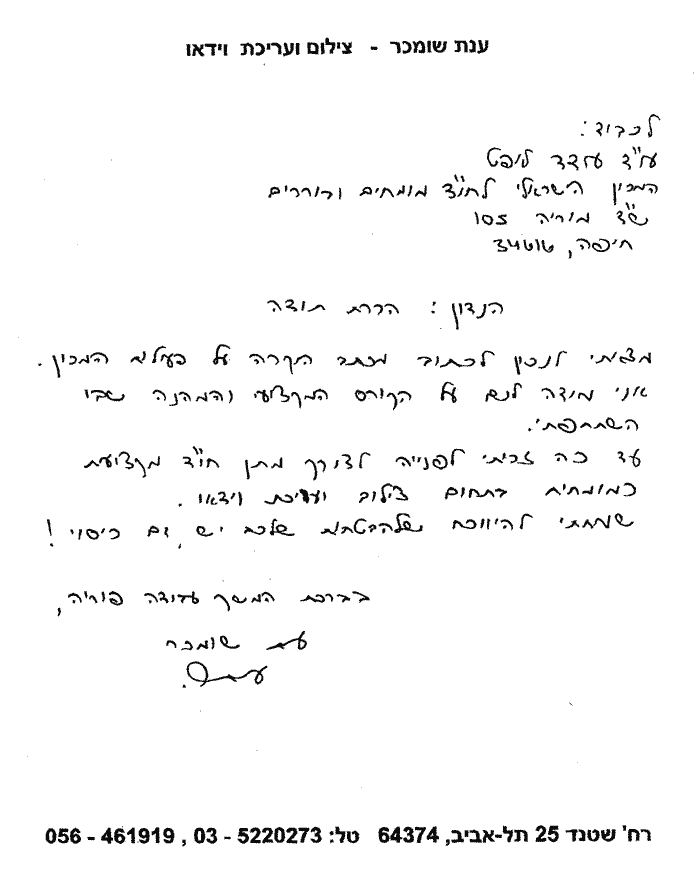 ענת שומכר - צילום ועריכת וידאו
לכבוד:
עו"ד עודד ליפט
המכון הישראלי לחו"ד מומחים ובוררים
שד' מוריה 105
חיפה, 34616
הנדון: הכרת תודה
מצאתי לנכון לכתוב מכתב הוקרה על פעילות המכון.
אני מודה לכם על הקורס המקצועי והמהנה שבו
השתתפתי.
עד כה זכיתי לפנייה לצורך מתן חו"ד מקצועית
כמומחית בתחום צילום ועריכת וידאו.
שמחתי להיווכח שלהבטחות שלכם יש גם כיסוי!
בברכת המשך עבודה פוריה,
ענת שומכר
רח' שטנד 25 תל-אביב, 64374 טל: 5220273 - 03 , 461919 - 056